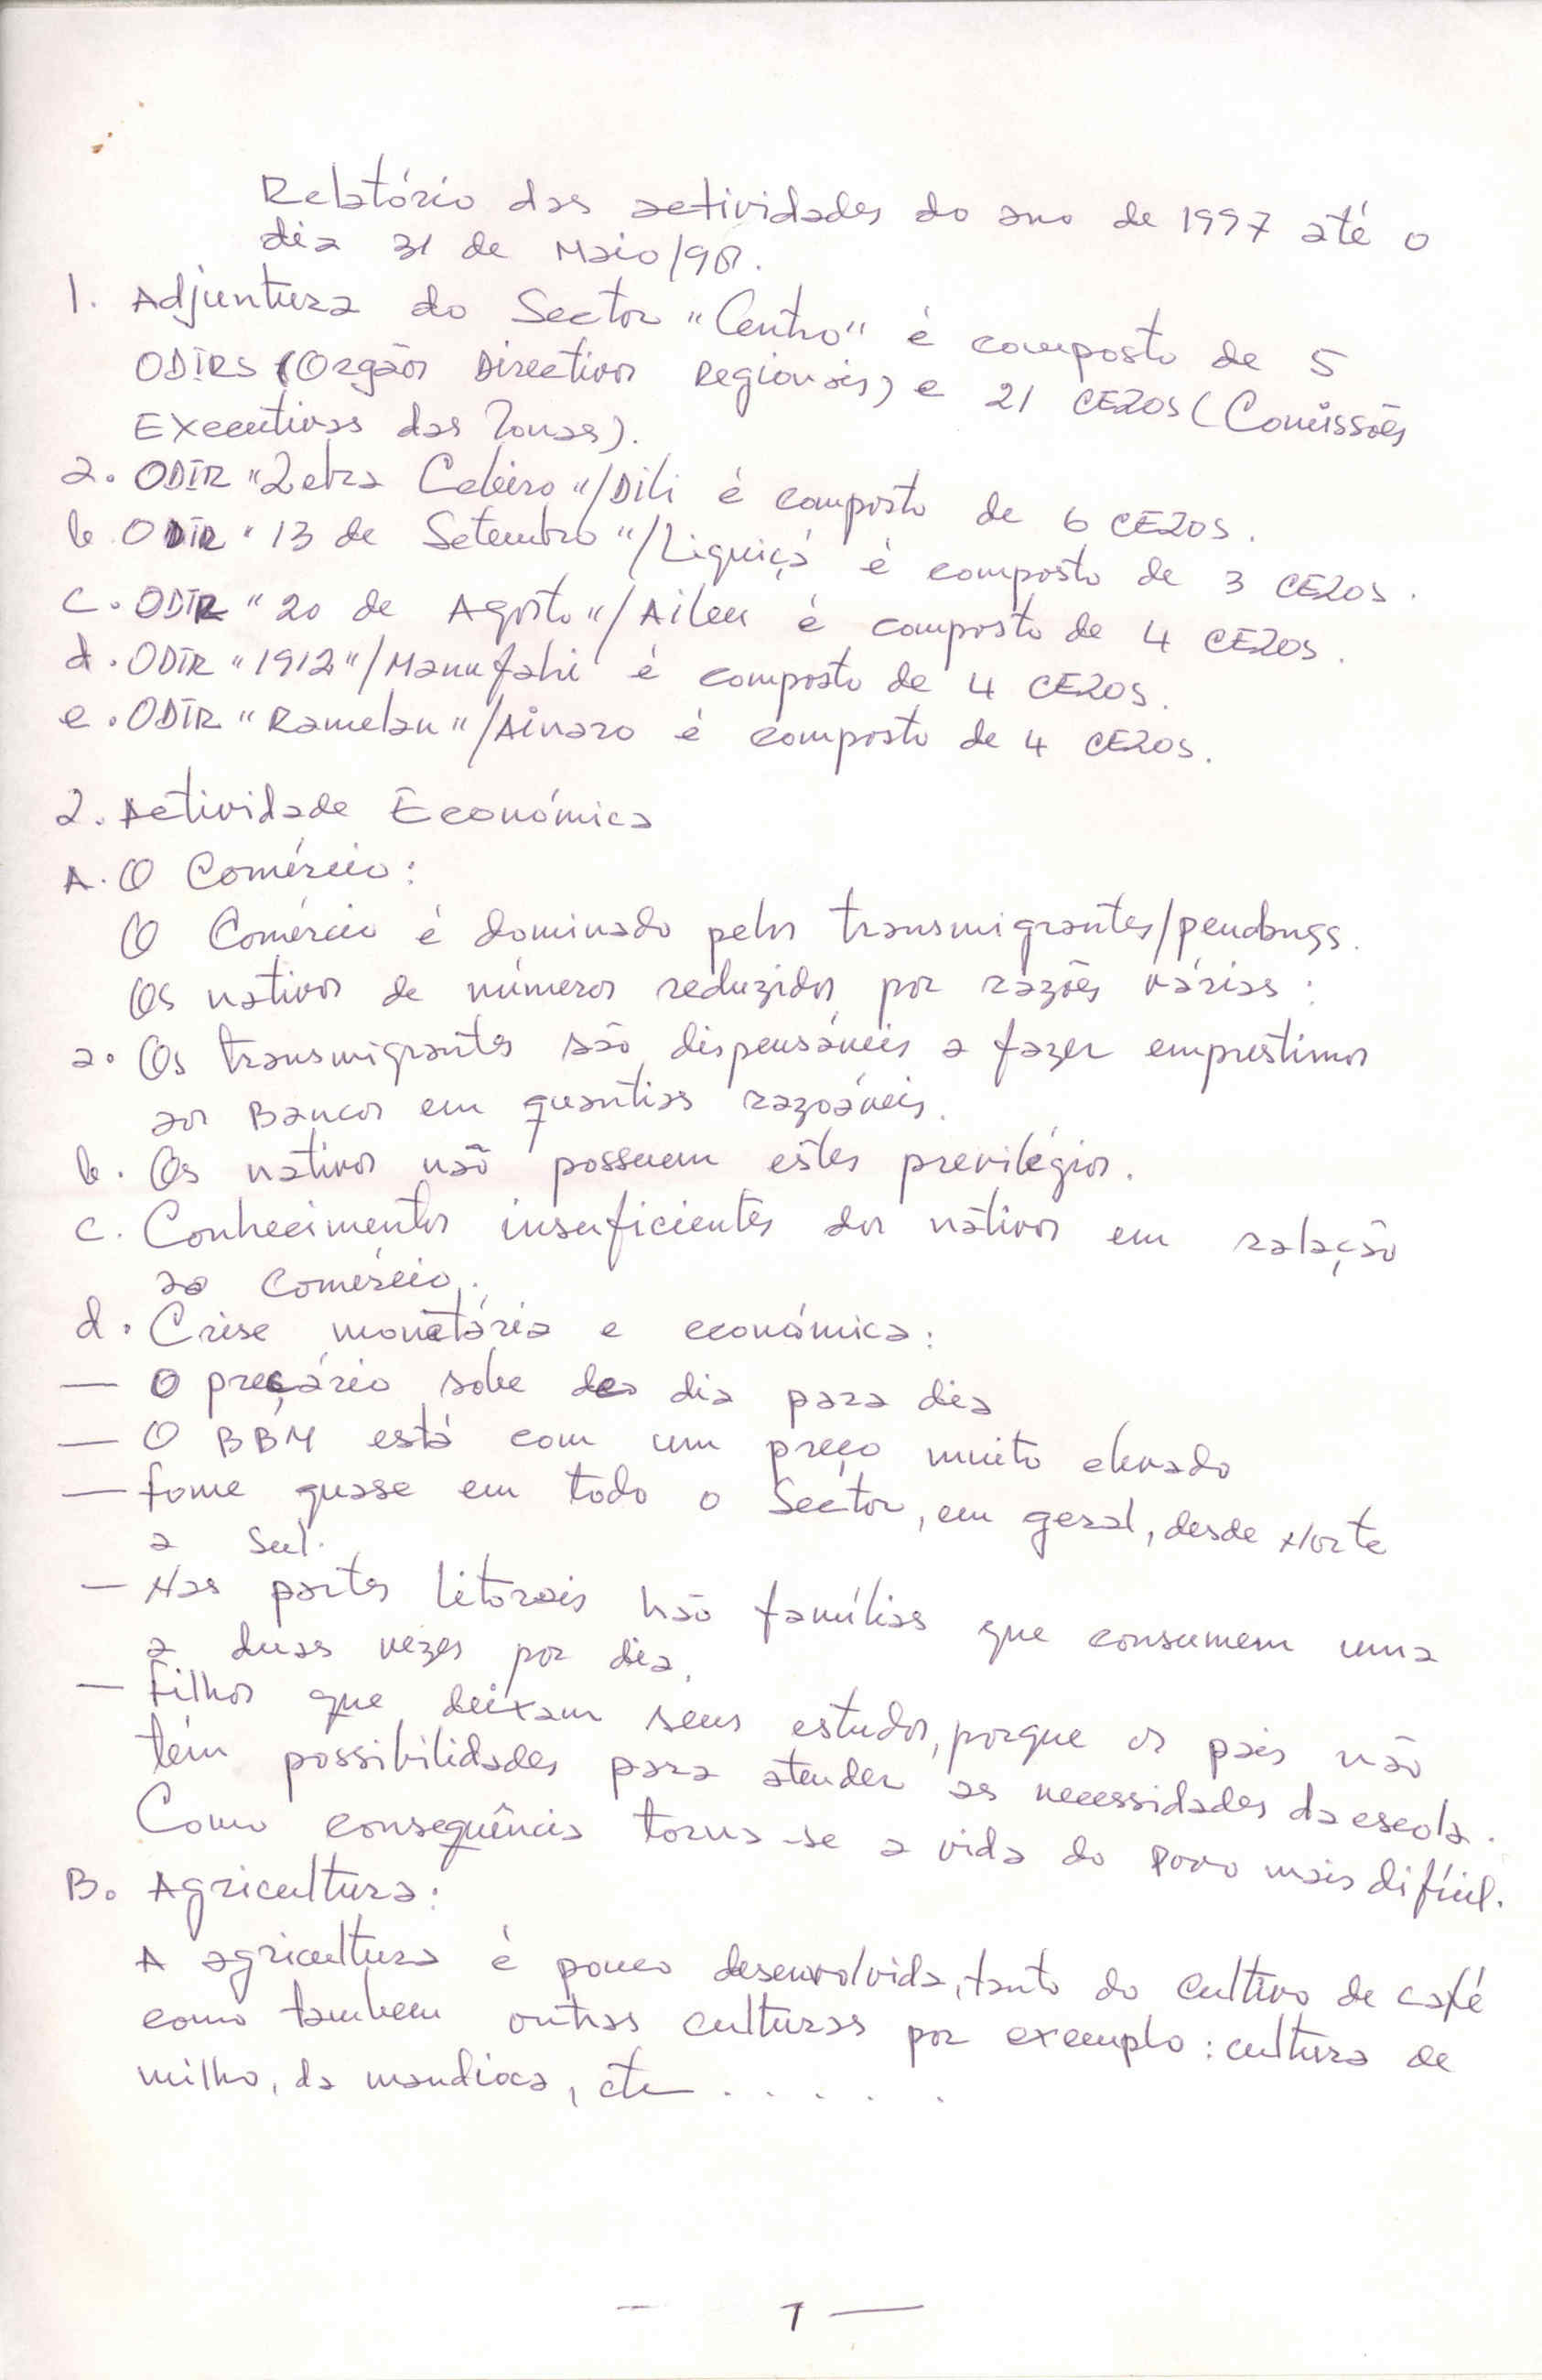 Relatório das actividades do ano de 1997 até o
dia 31 de Maio/98.
1. Adjuntura do Sector "Centro" é composto de 5
ODIRS (Orgãos Directivos Regionais) e 21 CEZOS (Comissões
Executivas das Zonas).
a. ODIR /Dili é composto de 6 CEZOS.
b. ODIR "13 de Setembro"/Liquiçá é composto de 3 CEZOS.
c. ODIR "20 de Agosto"/Aileu é composto de 4 CEZOS.
d. ODIR "1912"/Manufahi é composto de 4 CEZOS.
e. ODIR "Ramelau"/Ainaro é composto de 4 CEZOS.
2. Actividade Económica
A. O Comércio:
O Comércio é dominado pelos transmigrantes/pendangs.
Os nativos de números reduzidos, por razões várias:
a. Os transmigrantes são dispensáveis a fazer emprestimos
aos Bancos em quantias razoáveis.
b. Os nativos não possuem estes previlégios.
c. Conhecimentos insuficientes dos nativos em ralação
ao comércio.
d. Crise monetária e económica:
— O preçário sobe de dia para dia
— O BBM está com um preço muito elevado
— fome quase em todo o Sector, em geral, desde Norte
a Sul.
— Nas partes litorais hão famílias que consumem uma
a duas vezes por dia.
— Filhos que deixam seus estudos, porque os pais não
têm possibilidades para atender as necessidades da escola.
Como consequência torna-se a vida do povo mais difícil.
B. Agricultura:
A agricultura é pouco desenvolvida, tanto do cultivo de café
como tambem outras culturas por exemplo: cultura de
milho, da mandioca, etc . . . . . .
— 1 —